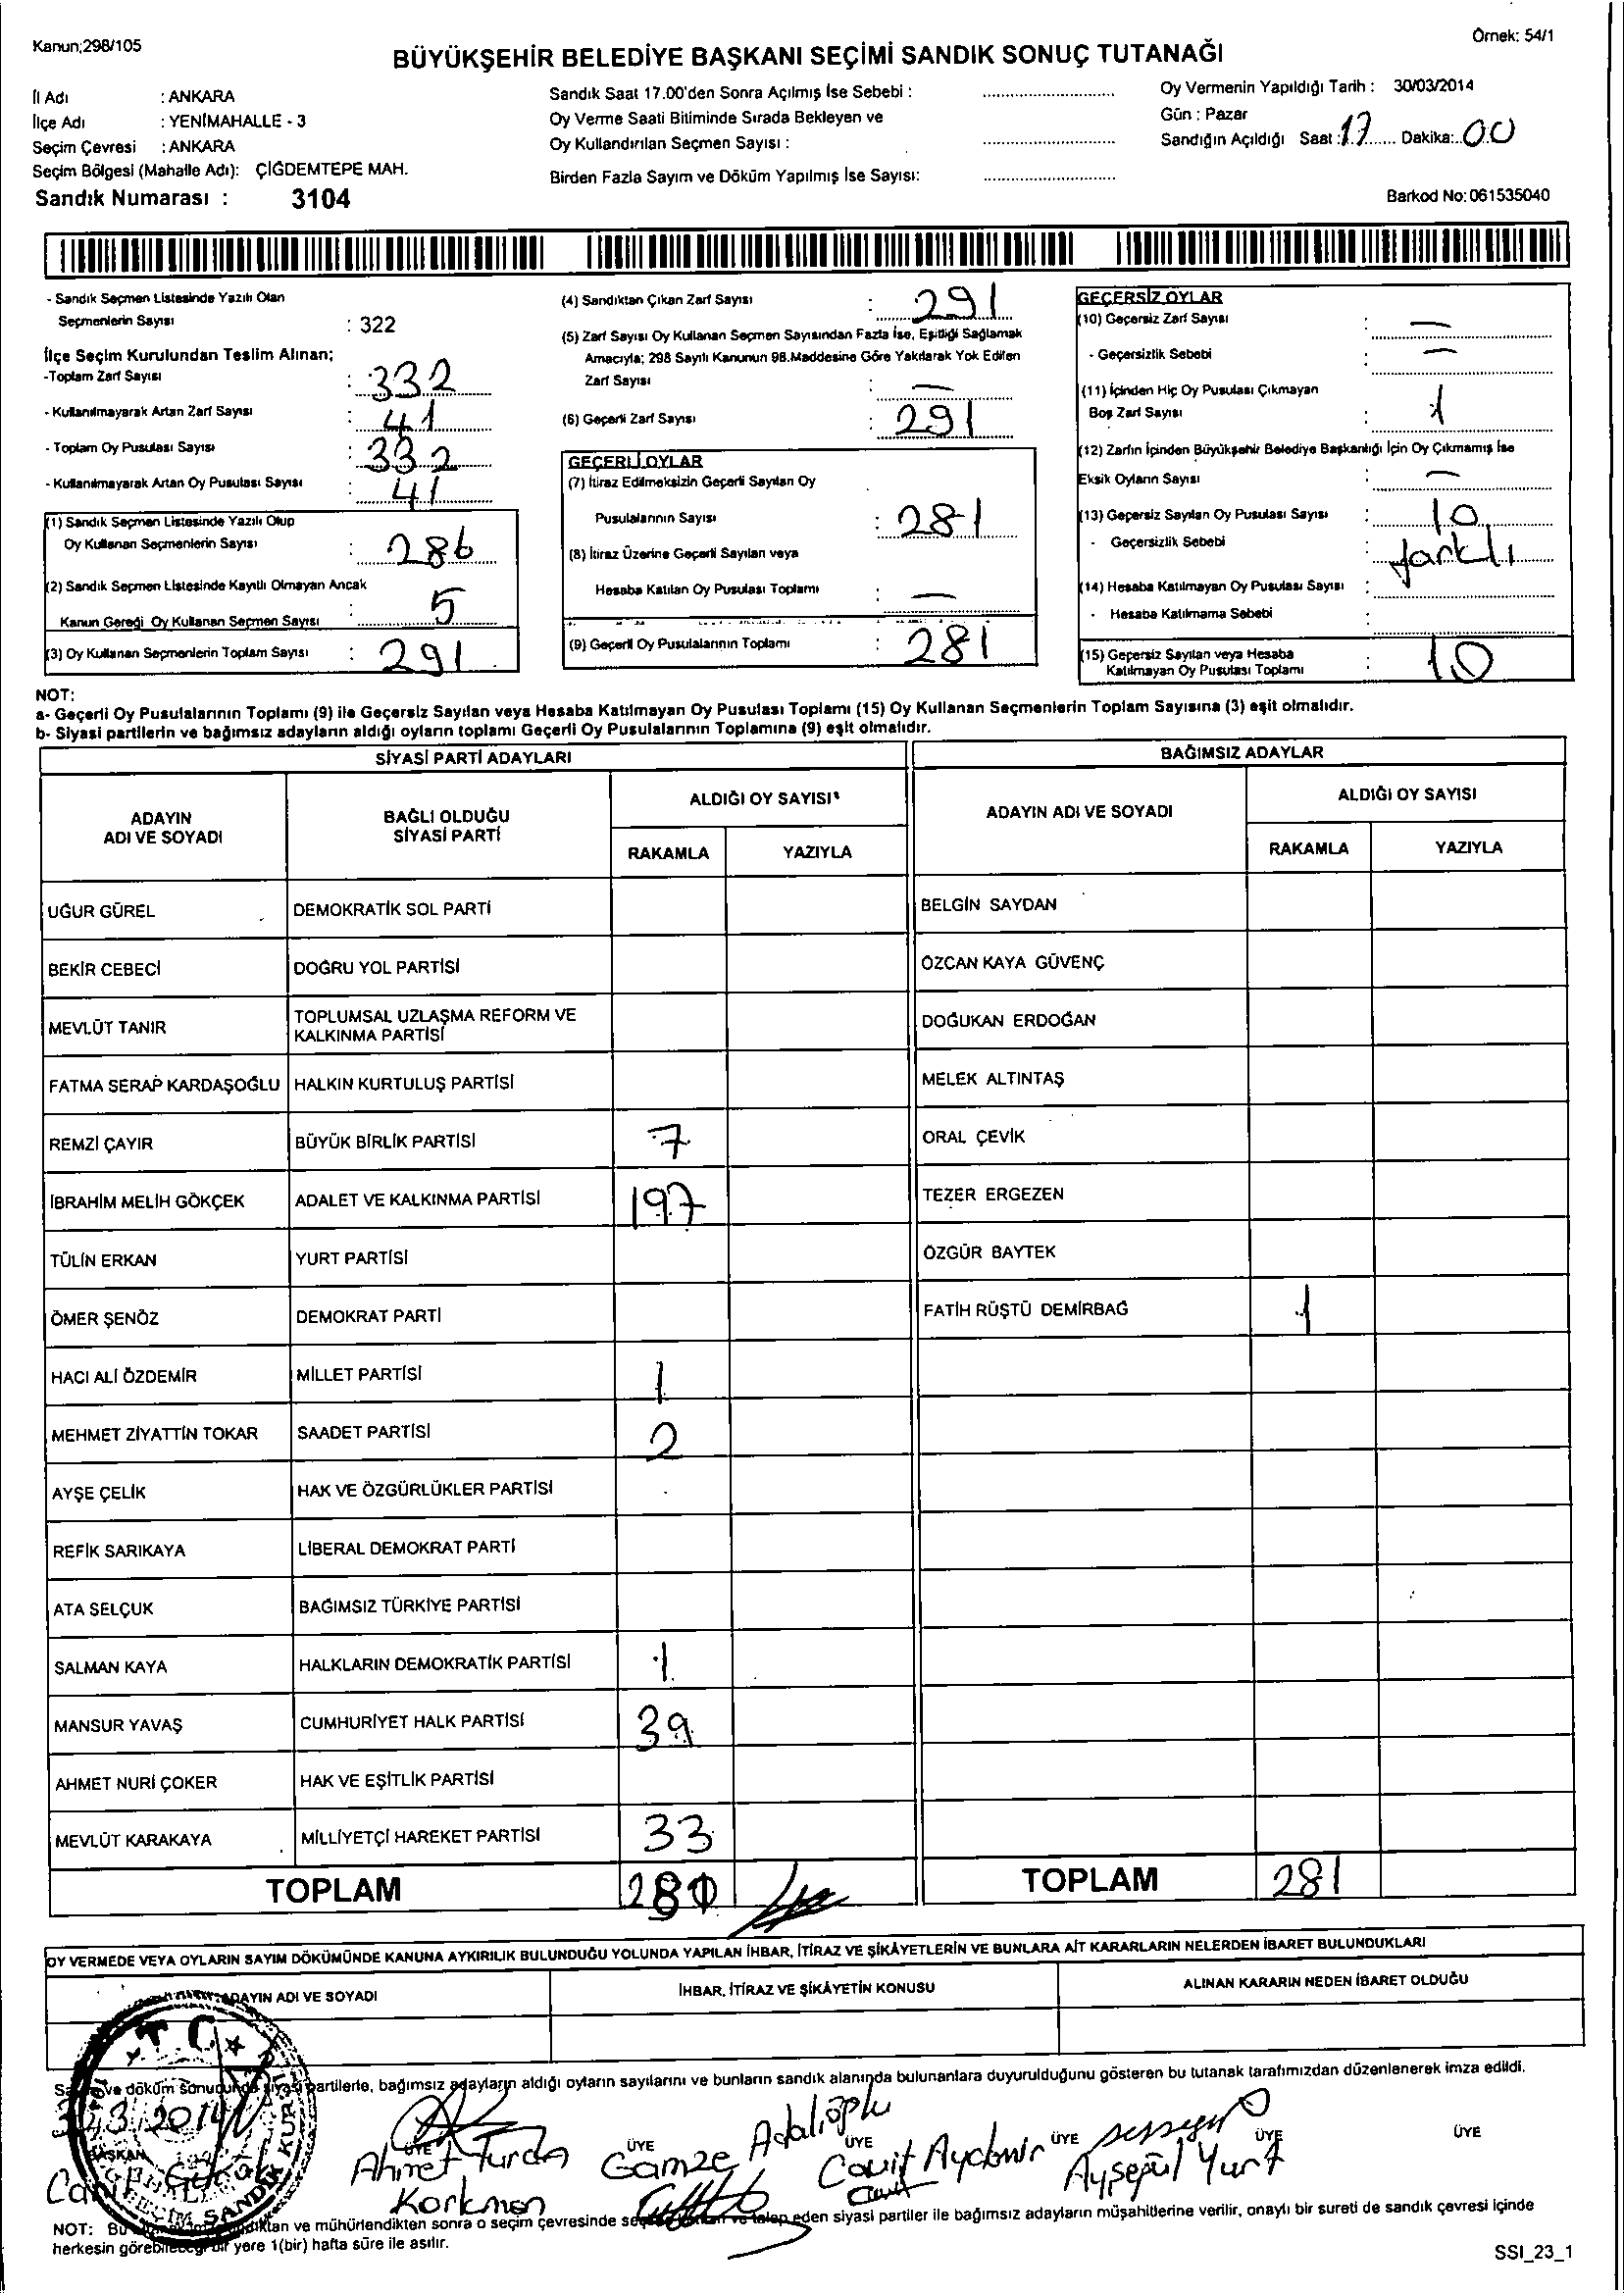 Kanun;298/105
Örnek: 54/1
BÜYÜKŞEHİR BELEDİYE BAŞKANI SEÇİMİ SANDIK SONUÇ TUTANAĞI
İl Adı : ANKARA
İlçe Adı : YENİMAHALLE - 3
Seçim Çevresi : ANKARA
Seçim Bölgesi (Mahalle Adı): ÇİĞDEMTEPE MAH.
Sandık Numarası : 3104
Sandık Saat 17.00'den Sonra Açılmış İse Sebebi :
Oy Verme Saati Bitiminde Sırada Bekleyen ve
Oy Kullandırılan Seçmen Sayısı :
Birden Fazla Sayım ve Döküm Yapılmış İse Sayısı:
Oy Vermenin Yapıldığı Tarih : 30/03/2014
Gün : Pazar
Sandığın Açıldığı Saat : 17 Dakika: 00
Barkod No: 061535040
- Sandık Seçmen Listesinde Yazılı Olan
Seçmenlerin Sayısı : 322
İlçe Seçim Kurulundan Teslim Alınan;
-Toplam Zarf Sayısı : 332
- Kullanılmayarak Artan Zarf Sayısı : 41
- Toplam Oy Pusulası Sayısı : 332
- Kullanılmayarak Artan Oy Pusulası Sayısı : 41
(1) Sandık Seçmen Listesinde Yazılı Olup
Oy Kullanan Seçmenlerin Sayısı : 286
(2) Sandık Seçmen Listesinde Kayıtlı Olmayan Ancak
Kanun Gereği Oy Kullanan Seçmen Sayısı : 5
(3) Oy Kullanan Seçmenlerin Toplam Sayısı : 291
(4) Sandıktan Çıkan Zarf Sayısı : 291
(5) Zarf Sayısı Oy Kullanan Seçmen Sayısından Fazla İse, Eşitliği Sağlamak
Amacıyla; 298 Sayılı Kanunun 98.Maddesine Göre Yakılarak Yok Edilen
Zarf Sayısı : —
(6) Geçerli Zarf Sayısı : 291
GEÇERLİ OYLAR
(7) İtiraz Edilmeksizin Geçerli Sayılan Oy
Pusulalarının Sayısı : 281
(8) İtiraz Üzerine Geçerli Sayılan veya
Hesaba Katılan Oy Pusulası Toplamı : —
(9) Geçerli Oy Pusulalarının Toplamı : 281
GEÇERSİZ OYLAR
(10) Geçersiz Zarf Sayısı : —
- Geçersizlik Sebebi : —
(11) İçinden Hiç Oy Pusulası Çıkmayan
Boş Zarf Sayısı : 1
(12) Zarfın İçinden Büyükşehir Belediye Başkanlığı İçin Oy Çıkmamış İse
Eksik Oyların Sayısı : —
(13) Geçersiz Sayılan Oy Pusulası Sayısı : 10
- Geçersizlik Sebebi : farklı
(14) Hesaba Katılmayan Oy Pusulası Sayısı :
- Hesaba Katılmama Sebebi :
(15) Geçersiz Sayılan veya Hesaba
Katılmayan Oy Pusulası Toplamı : 10
NOT:
a- Geçerli Oy Pusulalarının Toplamı (9) ile Geçersiz Sayılan veya Hesaba Katılmayan Oy Pusulası Toplamı (15) Oy Kullanan Seçmenlerin Toplam Sayısına (3) eşit olmalıdır.
b- Siyasi partilerin ve bağımsız adayların aldığı oyların toplamı Geçerli Oy Pusulalarının Toplamına (9) eşit olmalıdır.
SİYASİ PARTİ ADAYLARI
BAĞIMSIZ ADAYLAR
ADAYIN
ADI VE SOYADI
BAĞLI OLDUĞU
SİYASİ PARTİ
ALDIĞI OY SAYISI
RAKAMLA YAZIYLA
ADAYIN ADI VE SOYADI
ALDIĞI OY SAYISI
RAKAMLA YAZIYLA
UĞUR GÜREL DEMOKRATİK SOL PARTİ BELGİN SAYDAN
BEKİR CEBECİ DOĞRU YOL PARTİSİ ÖZCAN KAYA GÜVENÇ
MEVLÜT TANIR TOPLUMSAL UZLAŞMA REFORM VE
KALKINMA PARTİSİ DOĞUKAN ERDOĞAN
FATMA SERAP KARDAŞOĞLU HALKIN KURTULUŞ PARTİSİ MELEK ALTINTAŞ
REMZİ ÇAYIR BÜYÜK BİRLİK PARTİSİ 7 ORAL ÇEVİK
İBRAHİM MELİH GÖKÇEK ADALET VE KALKINMA PARTİSİ 197 TEZER ERGEZEN
TÜLİN ERKAN YURT PARTİSİ ÖZGÜR BAYTEK
ÖMER ŞENÖZ DEMOKRAT PARTİ FATİH RÜŞTÜ DEMİRBAĞ 1
HACI ALİ ÖZDEMİR MİLLET PARTİSİ 1
MEHMET ZİYATTİN TOKAR SAADET PARTİSİ 2
AYŞE ÇELİK HAK VE ÖZGÜRLÜKLER PARTİSİ
REFİK SARIKAYA LİBERAL DEMOKRAT PARTİ
ATA SELÇUK BAĞIMSIZ TÜRKİYE PARTİSİ
SALMAN KAYA HALKLARIN DEMOKRATİK PARTİSİ 1
MANSUR YAVAŞ CUMHURİYET HALK PARTİSİ 39
AHMET NURİ ÇOKER HAK VE EŞİTLİK PARTİSİ
MEVLÜT KARAKAYA MİLLİYETÇİ HAREKET PARTİSİ 33
TOPLAM TOPLAM 281
OY VERMEDE VEYA OYLARIN SAYIM DÖKÜMÜNDE KANUNA AYKIRILIK BULUNDUĞU YOLUNDA YAPILAN İHBAR, İTİRAZ VE ŞİKÂYETLERİN VE BUNLARA AİT KARARLARIN NELERDEN İBARET BULUNDUKLARI
ADAYIN ADI VE SOYADI İHBAR, İTİRAZ VE ŞİKÂYETİN KONUSU ALINAN KARARIN NEDEN İBARET OLDUĞU
ve döküm sonucunda siyasi partilerle, bağımsız adayların aldığı oyların sayılarını ve bunların sandık alanında bulunanlara duyurulduğunu gösteren bu tutanak tarafımızdan düzenlenerek imza edildi.
T C
BAŞKAN ÜYE ÜYE ÜYE ÜYE ÜYE ÜYE
Ahmet Turan
Korkmen
Gamze Adalıoğlu
Cavit Aydemir
Ayşegül Yurt
NOT: sonra o seçim çevresinde eden siyasi partiler ile bağımsız adayların müşahitlerine verilir, onaylı bir sureti de sandık çevresi içinde
herkesin görebileceği bir yere 1(bir) hafta süre ile asılır.
SSI_23_1